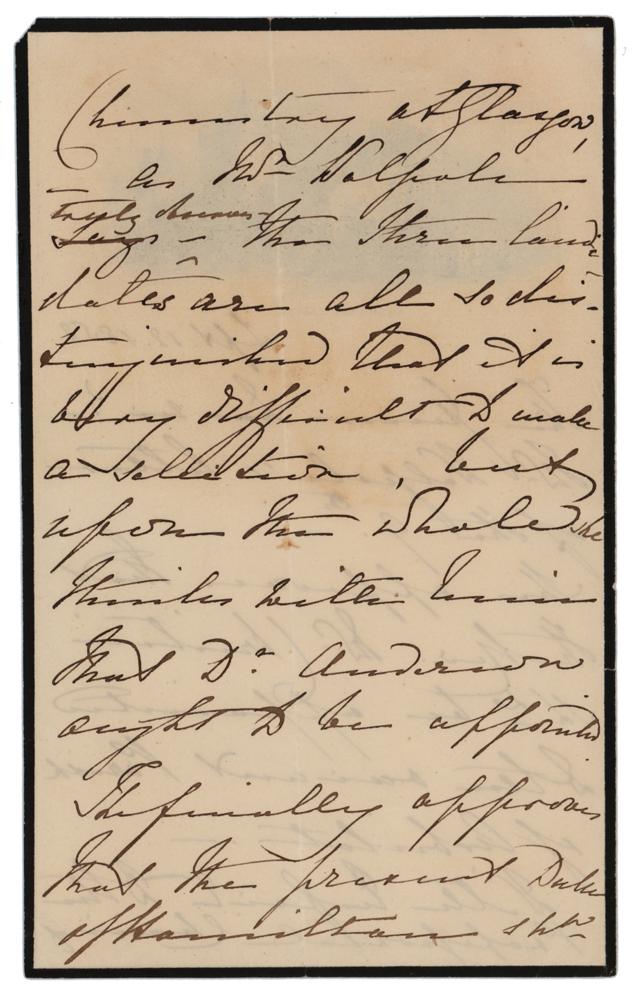 Chemistry at Glasgow,
– as Mr Walpole
truly observes
says – the three Candi-
dates are all so dis-
tinguished that it is
very difficult to make
a selection, but
upon the whole she
thinks with him
that Dr Anderson
ought to be appointed
She finally approves
that the present Duke
of Hamilton shd